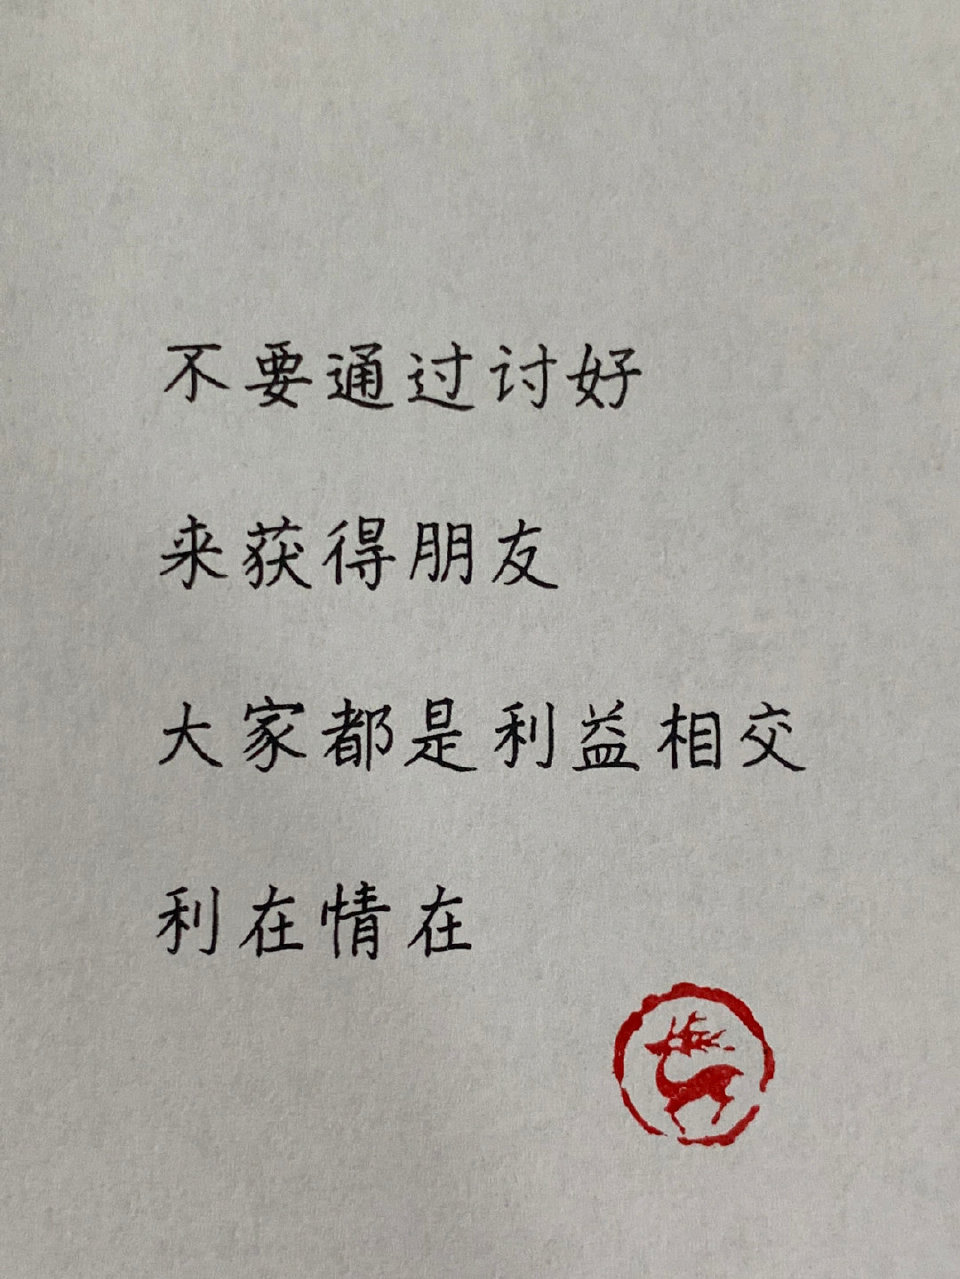 不要通过讨好
来获得朋友
大家都是利益相交
利在情在